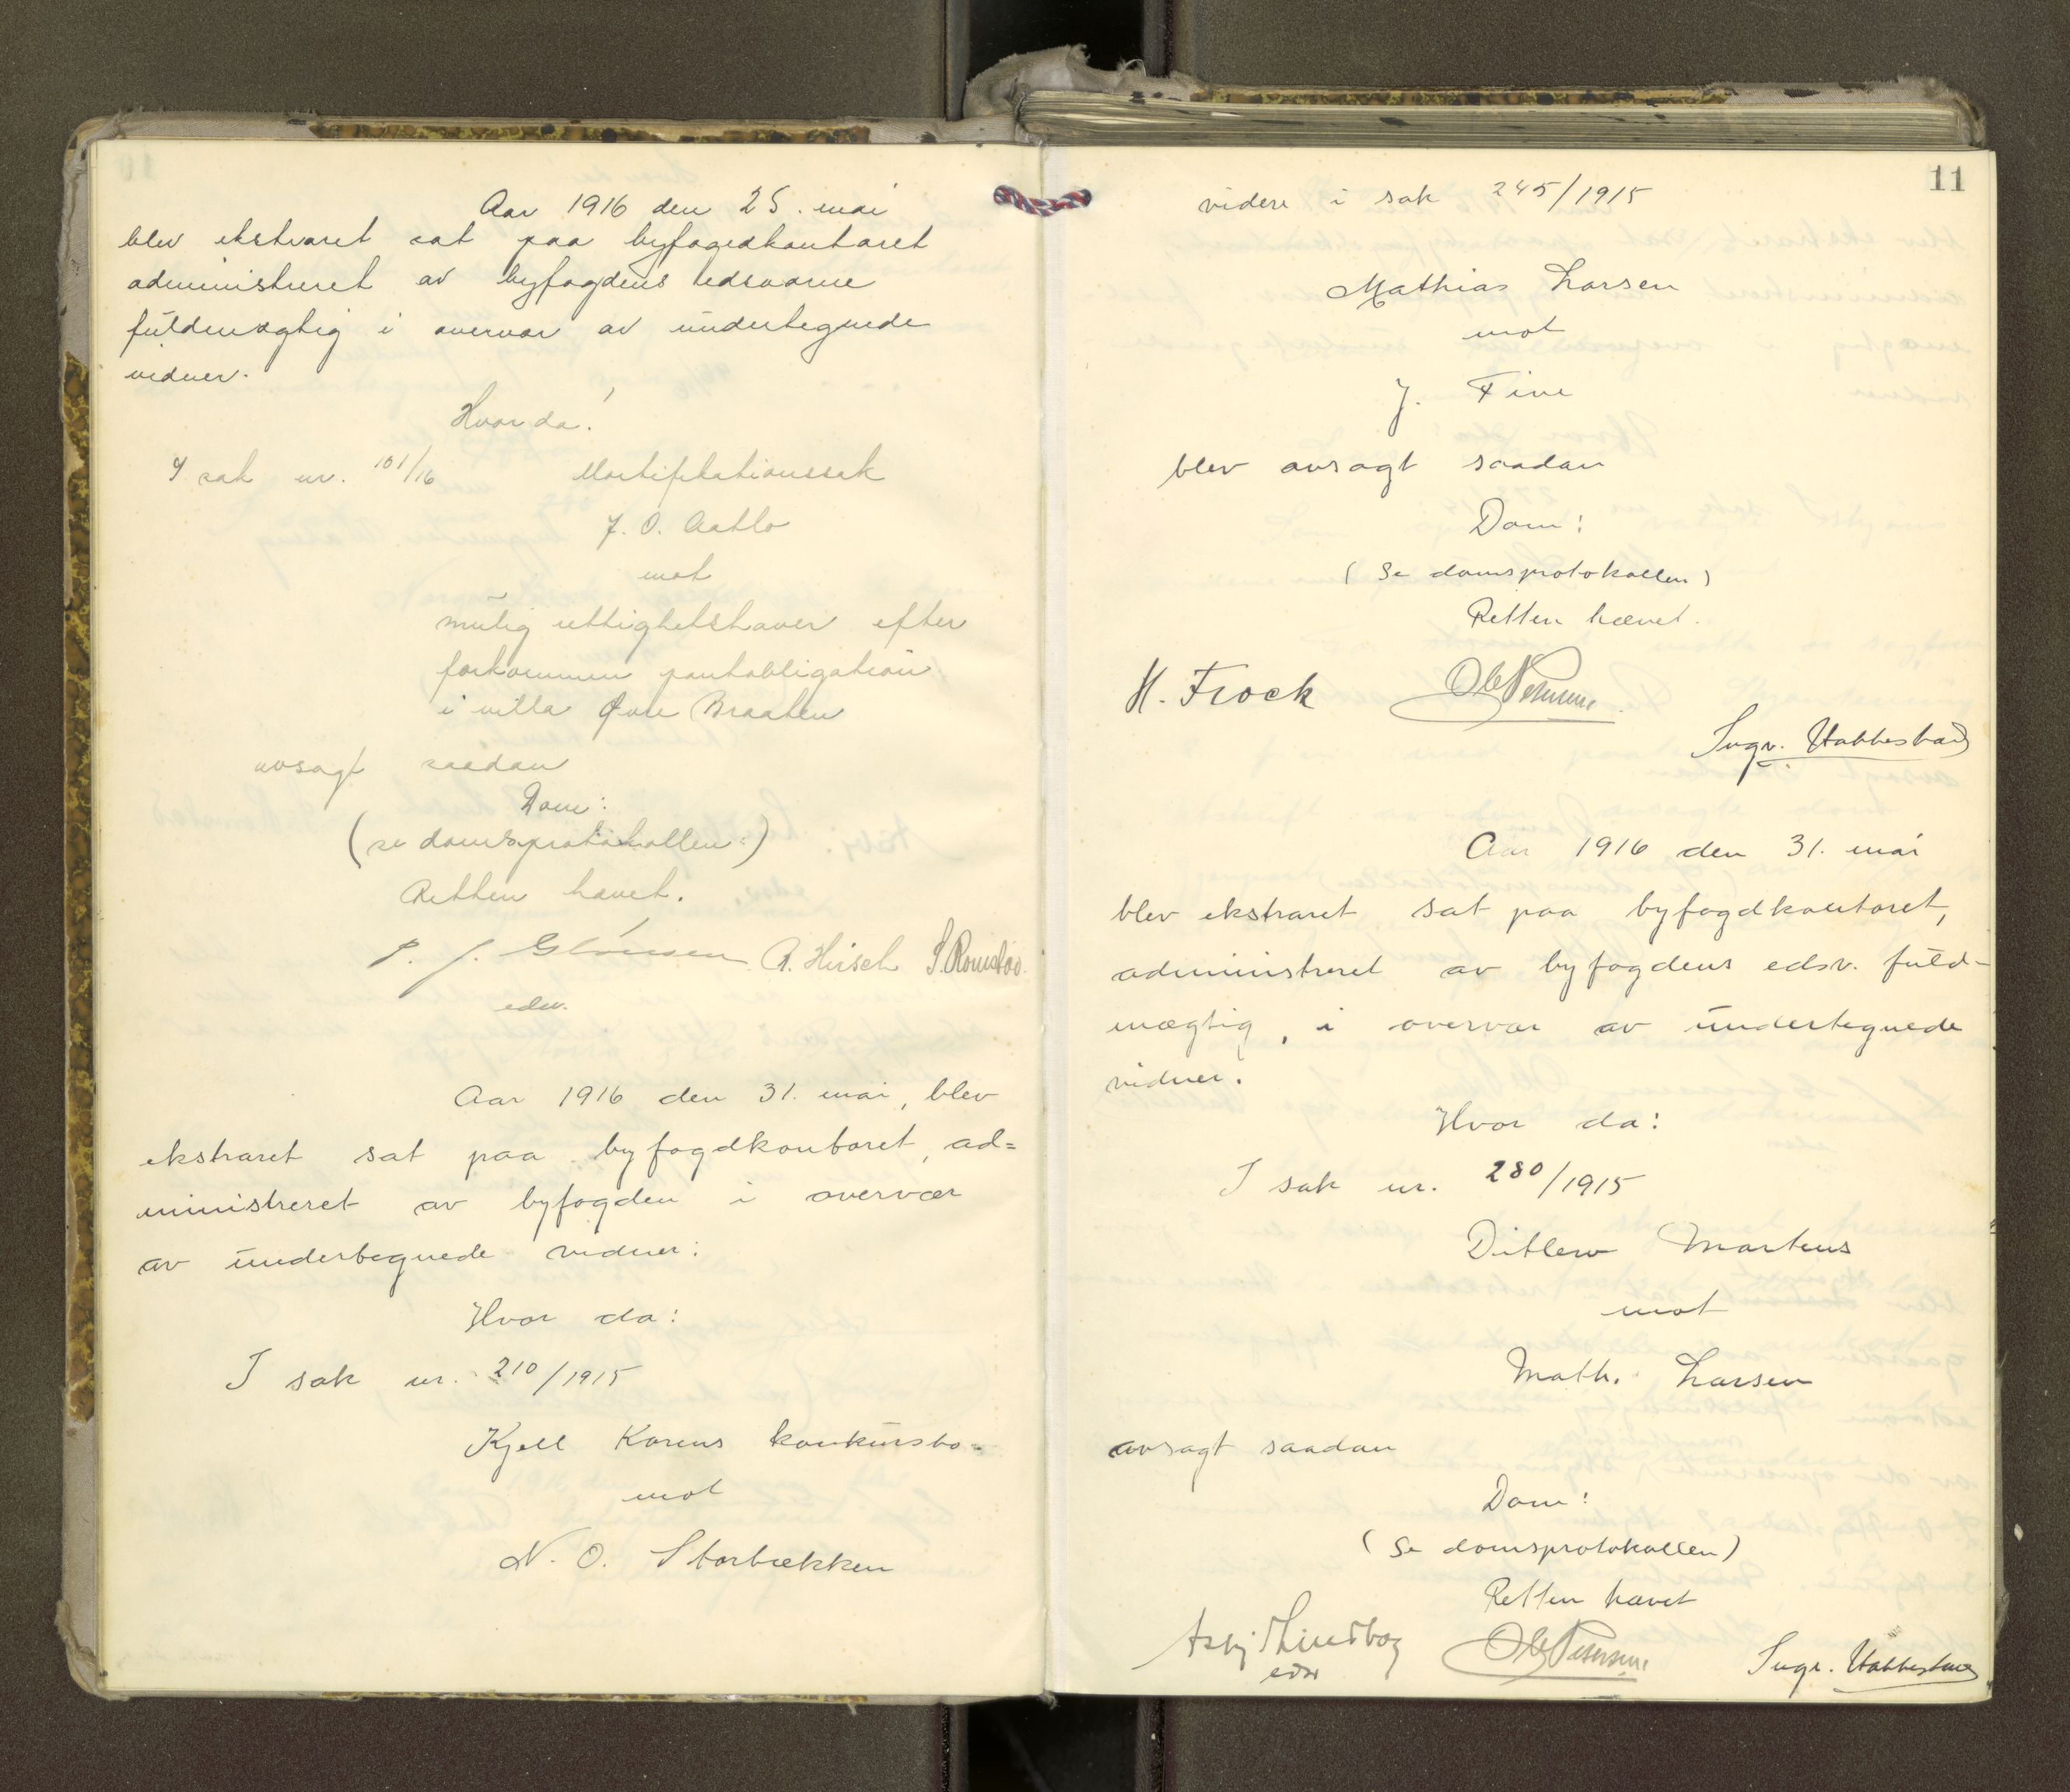 Aar 1916 den 25. mai
blev ekstraret sat paa byfogedkontoret
administreret av byfogdens edsvorne
fuldmægtig i overvær av undertegnede
vidner.
Hvor da!
I sak nr. 101/16 Mortifikationssak
J. O. Aatlo
mot
mulig rettighetshaver efter
forkommen pantobligation
i villa Øvre Braaten
avsagt saadan
Dom:
(se domsprotokollen:)
Retten hævet.
P. J. A. Hirsch S. Romstad
edsv.
Aar 1916 den 31. mai, blev
ekstraret sat paa byfogdkontoret, ad=
ministreret av byfogden i overvær
av undertegnede vidner:
Hvor da:
I sak nr. 210/1915
Kjell Korens konkursbo
mot
N. O. Storbækken
11
videre i sak 245/1915
Mathias Larsen
mot
J. Fine
blev avsagt saadan
Dom:
(Se domsprotokollen)
Retten hævet.
H. Frock Ole Petersen
Ingr. Habbestad
Aar 1916 den 31. mai
blev ekstraret sat paa byfogdkontoret,
administreret av byfogdens edsv. fuld-
mægtig, i overvær av undertegnede
vidner.
Hvor da:
I sak nr. 280/1915
Ditlew Martens
mot
Math. Larsen
avsagt saadan
Dom:
(Se domsprotokollen)
Retten hævet
Asbj Lindbog Ole Petersen Ingr. Habbestad
edsv